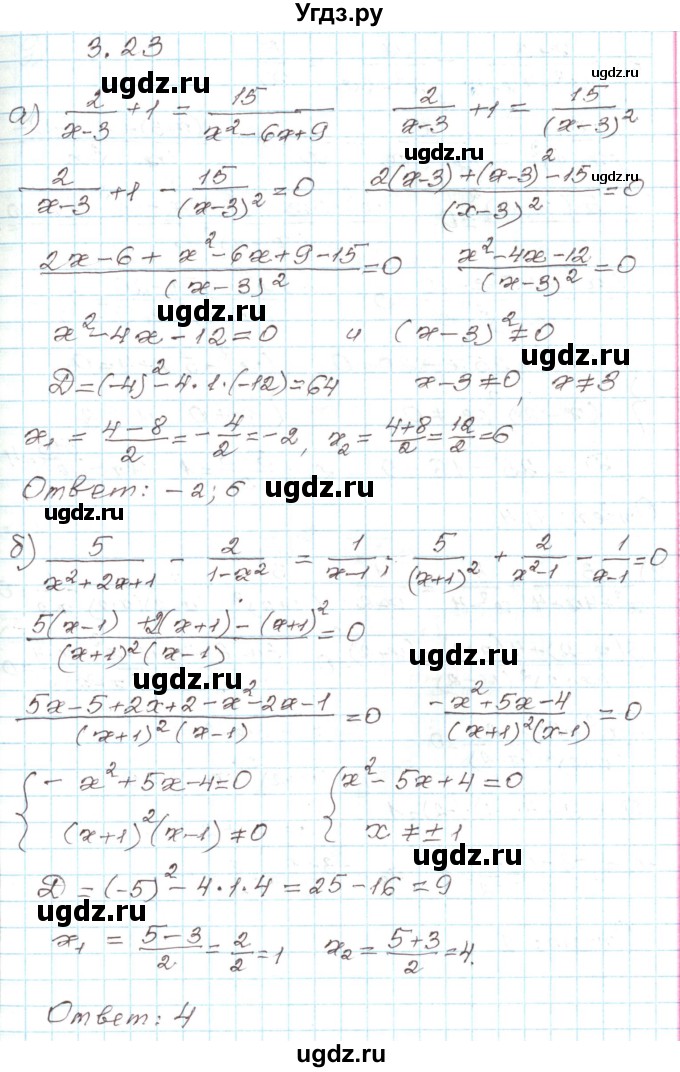 Угдз.ру
3.23
ugdz.ru ugdz.ru
а) 2/(x-3) + 1 = 15/(x²-6x+9)   2/(x-3) + 1 = 15/(x-3)²
ugdz.ru ugdz.ru
2/(x-3) + 1 - 15/(x-3)² = 0   (2(x-3)+(x-3)²-15)/(x-3)² = 0
(2x-6+x²-6x+9-15)/(x-3)² = 0   (x²-4x-12)/(x-3)² = 0
ugdz.ru
x²-4x-12=0   и   (x-3)²≠0
ugdz.ru
D=(-4)²-4·1·(-12)=64   x-3≠0, x≠3
x₁ = (4-8)/2 = -4/2 = -2, x₂ = (4+8)/2 = 12/2 = 6
Ответ: -2; 6 ugdz.ru
ugdz.ru
б) 5/(x²+2x+1) - 2/(1-x²) = 1/(x-1); 5/(x+1)² + 2/(x²-1) - 1/(x-1) = 0
(5(x-1)+2(x+1)-(x+1)²)/((x+1)²(x-1)) = 0
ugdz.ru
ugdz.ru
(5x-5+2x+2-x²-2x-1)/((x+1)²(x-1)) = 0   (-x²+5x-4)/((x+1)²(x-1)) = 0
{ -x²+5x-4=0   { x²-5x+4=0
(x+1)²(x-1)≠0   x≠±1
ugdz.ru
D=(-5)²-4·1·4=25-16=9
ugdz.ru
x₁ = (5-3)/2 = 2/2 = 1   x₂ = (5+3)/2 = 4.
Ответ: 4
ugdz.ru